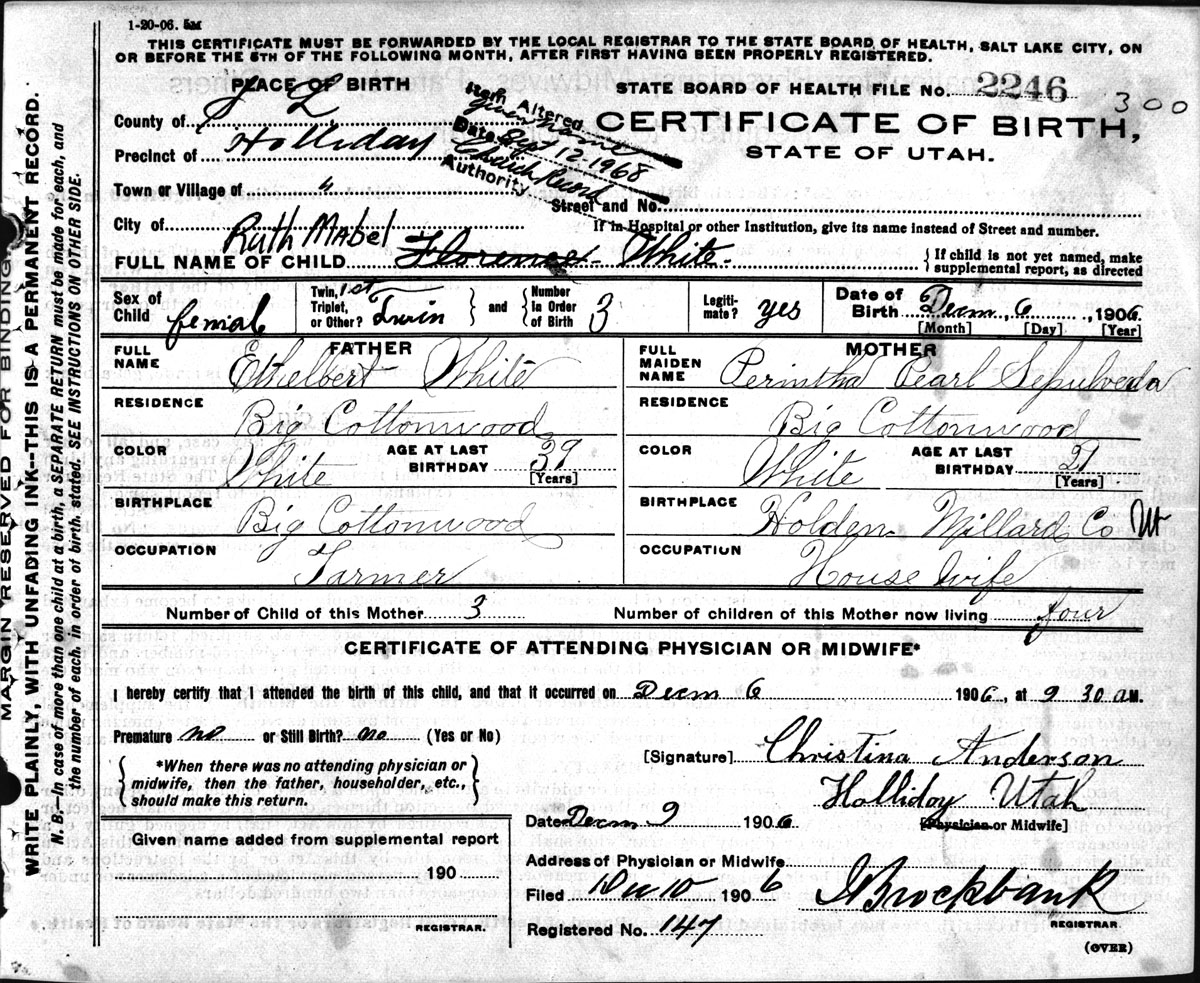 1-20-06. 5M
THIS CERTIFICATE MUST BE FORWARDED BY THE LOCAL REGISTRAR TO THE STATE BOARD OF HEALTH, SALT LAKE CITY, ON
OR BEFORE THE 5TH OF THE FOLLOWING MONTH, AFTER FIRST HAVING BEEN PROPERLY REGISTERED.
PLACE OF BIRTH
STATE BOARD OF HEALTH FILE No. 2246
300
County of S L
Item Altered given name
Date Sept 12-1968
Authority Church Record
CERTIFICATE OF BIRTH,
STATE OF UTAH.
Precinct of Holliday
Town or Village of "
Street and No.
City of
If in Hospital or other Institution, give its name instead of Street and number.
Ruth Mabel
FULL NAME OF CHILD Florence White
If child is not yet named, make
supplemental report, as directed
Sex of Child female
Twin, Triplet, or Other? 1st Twin
and
Number In Order of Birth 3
Legitimate? yes
Date of Birth Decm, 6, 1906.
[Month] [Day] [Year]
FATHER
FULL NAME Ethelbert White
RESIDENCE Big Cottonwood
COLOR White
AGE AT LAST BIRTHDAY 39 [Years]
BIRTHPLACE Big Cottonwood
OCCUPATION Farmer
MOTHER
FULL MAIDEN NAME Perintha Pearl Sepulveda
RESIDENCE Big Cottonwood
COLOR White
AGE AT LAST BIRTHDAY 21 [Years]
BIRTHPLACE Holden Millard Co Ut
OCCUPATION House wife
Number of Child of this Mother 3 Number of children of this Mother now living four
CERTIFICATE OF ATTENDING PHYSICIAN OR MIDWIFE*
I hereby certify that I attended the birth of this child, and that it occurred on Decm 6 1906, at 9 30 a M.
Premature no or Still Birth? no (Yes or No)
*When there was no attending physician or
midwife, then the father, householder, etc.,
should make this return.
[Signature] Christina Anderson
Holliday Utah
[Physician or Midwife]
Date Decm 9 1906
Given name added from supplemental report
190
REGISTRAR.
Address of Physician or Midwife
Filed Dec 10 1906
Brockbank
REGISTRAR.
Registered No. 147
(OVER)
MARGIN RESERVED FOR BINDING
WRITE PLAINLY, WITH UNFADING INK--THIS IS A PERMANENT RECORD.
N. B.--In case of more than one child at a birth, a SEPARATE RETURN must be made for each, and
the number of each, in order of birth stated. SEE INSTRUCTIONS ON OTHER SIDE.